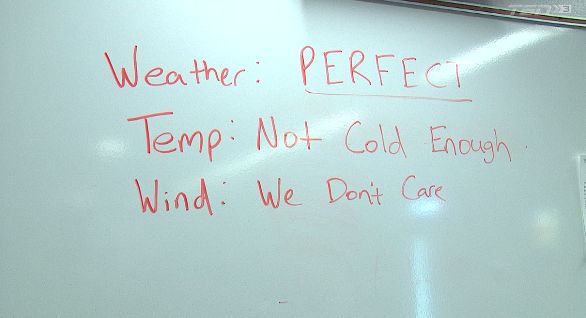 Weather: PERFECT
Temp: Not Cold Enough.
Wind: We Don't Care